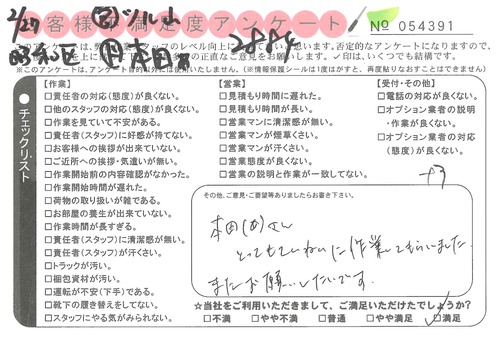 お客様満足度アンケート
No 054391
2/27
※このアンケートは、アンケート目的以外には使用いたしません。(※情報保護シールは1度はがすと、再度貼りなおすことはできません)
チェックリスト
【作業】
□責任者の対応(態度)が良くない。
□他のスタッフの対応(態度)が良くない。
□作業を見ていて不安がある。
□責任者(スタッフ)に好感が持てない。
□お客様への挨拶が出来ていない。
□ご近所への挨拶・気遣いが無い。
□作業開始前の内容確認がなかった。
□作業開始時間が遅れた。
□荷物の取り扱いが雑である。
□お部屋の養生が出来ていない。
□作業時間が長すぎる。
□責任者(スタッフ)に清潔感が無い。
□責任者(スタッフ)が汗くさい。
□トラックが汚い。
□梱包資材が汚い。
□運転が不安(下手)である。
□靴下の履き替えをしてない。
□スタッフにやる気がみられない。
【営業】
□見積もり時間に遅れた。
□見積もり時間が長い。
□営業マンに清潔感が無い。
□営業マンが煙草くさい。
□営業マンが汗くさい。
□営業態度が良くない。
□営業の説明と作業が一致してない。
【受付・その他】
□電話の対応が良くない。
□オプション業者の説明
・作業が良くない。
□オプション業者の対応
(態度)が良くない。
その他、ご意見・ご要望等ありましたらお書き下さい。
本田(あ)さん
とってもていねいに作業してもらいました
またお願いしたいです。
☆当社をご利用いただきまして、ご満足いただけたでしょうか?
□不満 □やや不満 □普通 □やや満足 □満足